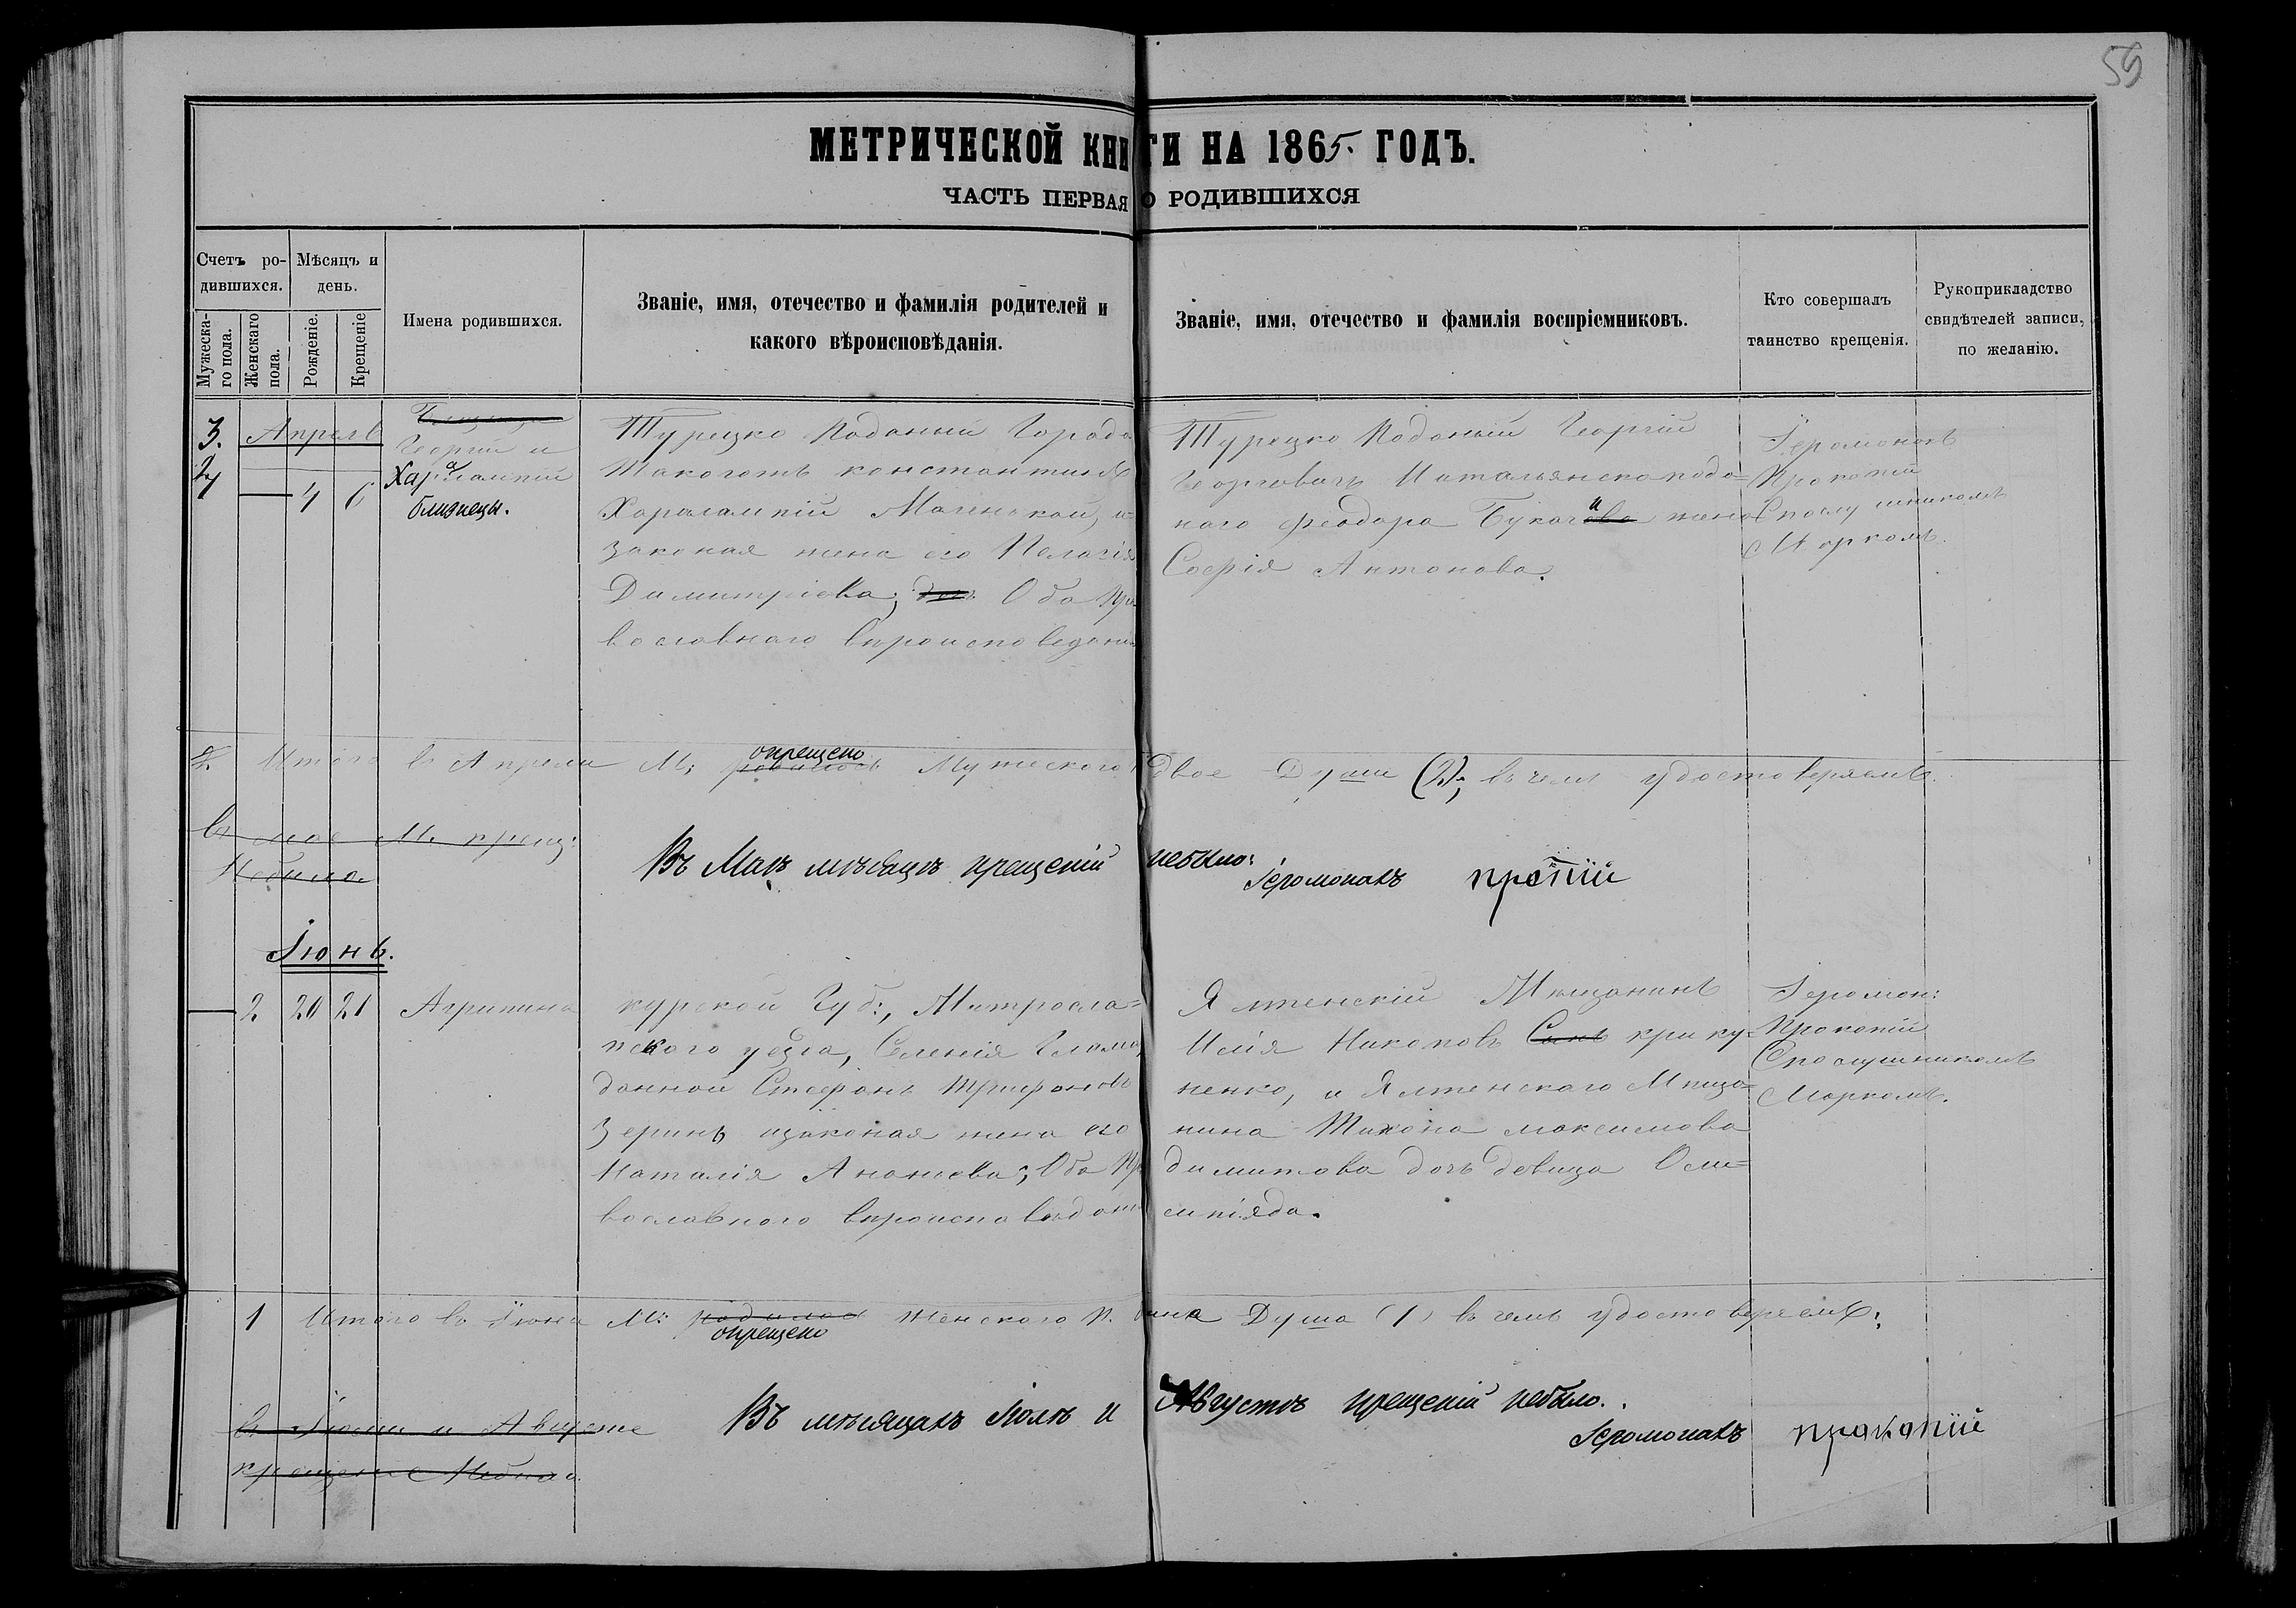 59
МЕТРИЧЕСКОЙ КНИГИ НА 1865. ГОДЪ.
ЧАСТЬ ПЕРВАЯ О РОДИВШИХСЯ
Счетъ родившихся.
Мужеска-го пола.
Женскаго пола.
Мѣсяцъ и день.
Рожденіе.
Крещеніе
Имена родившихся.
Званіе, имя, отечество и фамилія родителей и
какого вѣроисповѣданія.
Званіе, имя, отечество и фамилія воспріемниковъ.
Кто совершалъ
таинство крещенія.
Рукоприкладство
свидѣтелей записи,
по желанію.
3. Апрель
4 — 4 6
Георгій и
Харалампій
близнецы.
Турецко Поданый Города
константинъ
Харалампій
законая жена его Пелагія
Димитріева; Оба Пра
вославнаго
Турецко Поданый Георгій
Георговичь Итальянско пода=
наго феодора жена
Софія Антонова.
Іеромонахъ
Прокопій
Спослушникомъ
Маркомъ.
2. Итого в Апрели М; окрещено Мужескаго Двое Души (2); в чемъ удостоверяемъ.
в мае М. крещ:
Небыло
Въ Маѣ мѣсяцѣ крещеній небыло:
Іеромонахъ
Іюнь.
— 2 20 21 Агрипина
курской Губ:,
уезда, Селенія
Стефанъ Трифоновъ
Зеринъ изаконая жена его
Наталія Ананьева; Оба Пр
вославного
Ялтенскій Мещанинъ
Илія Никоновъ Сынъ крику=
ненко, и Ялтенскаго Мища=
нина Тихона максимова
димитова дочь девица Оли=
мпіяда.
Іеромон:
Прокопій
Спослушникомъ
Маркомъ.
1 Итого в Іюни М: родилося окрещено Женскаго П. Одна Душа (1) в чемъ удостоверяемъ;
в Іюли и Августе
крещение Небыло.
Въ мѣсяцахъ Іюлѣ и Августѣ крещеній небыло.
Іеромонахъ прокопій